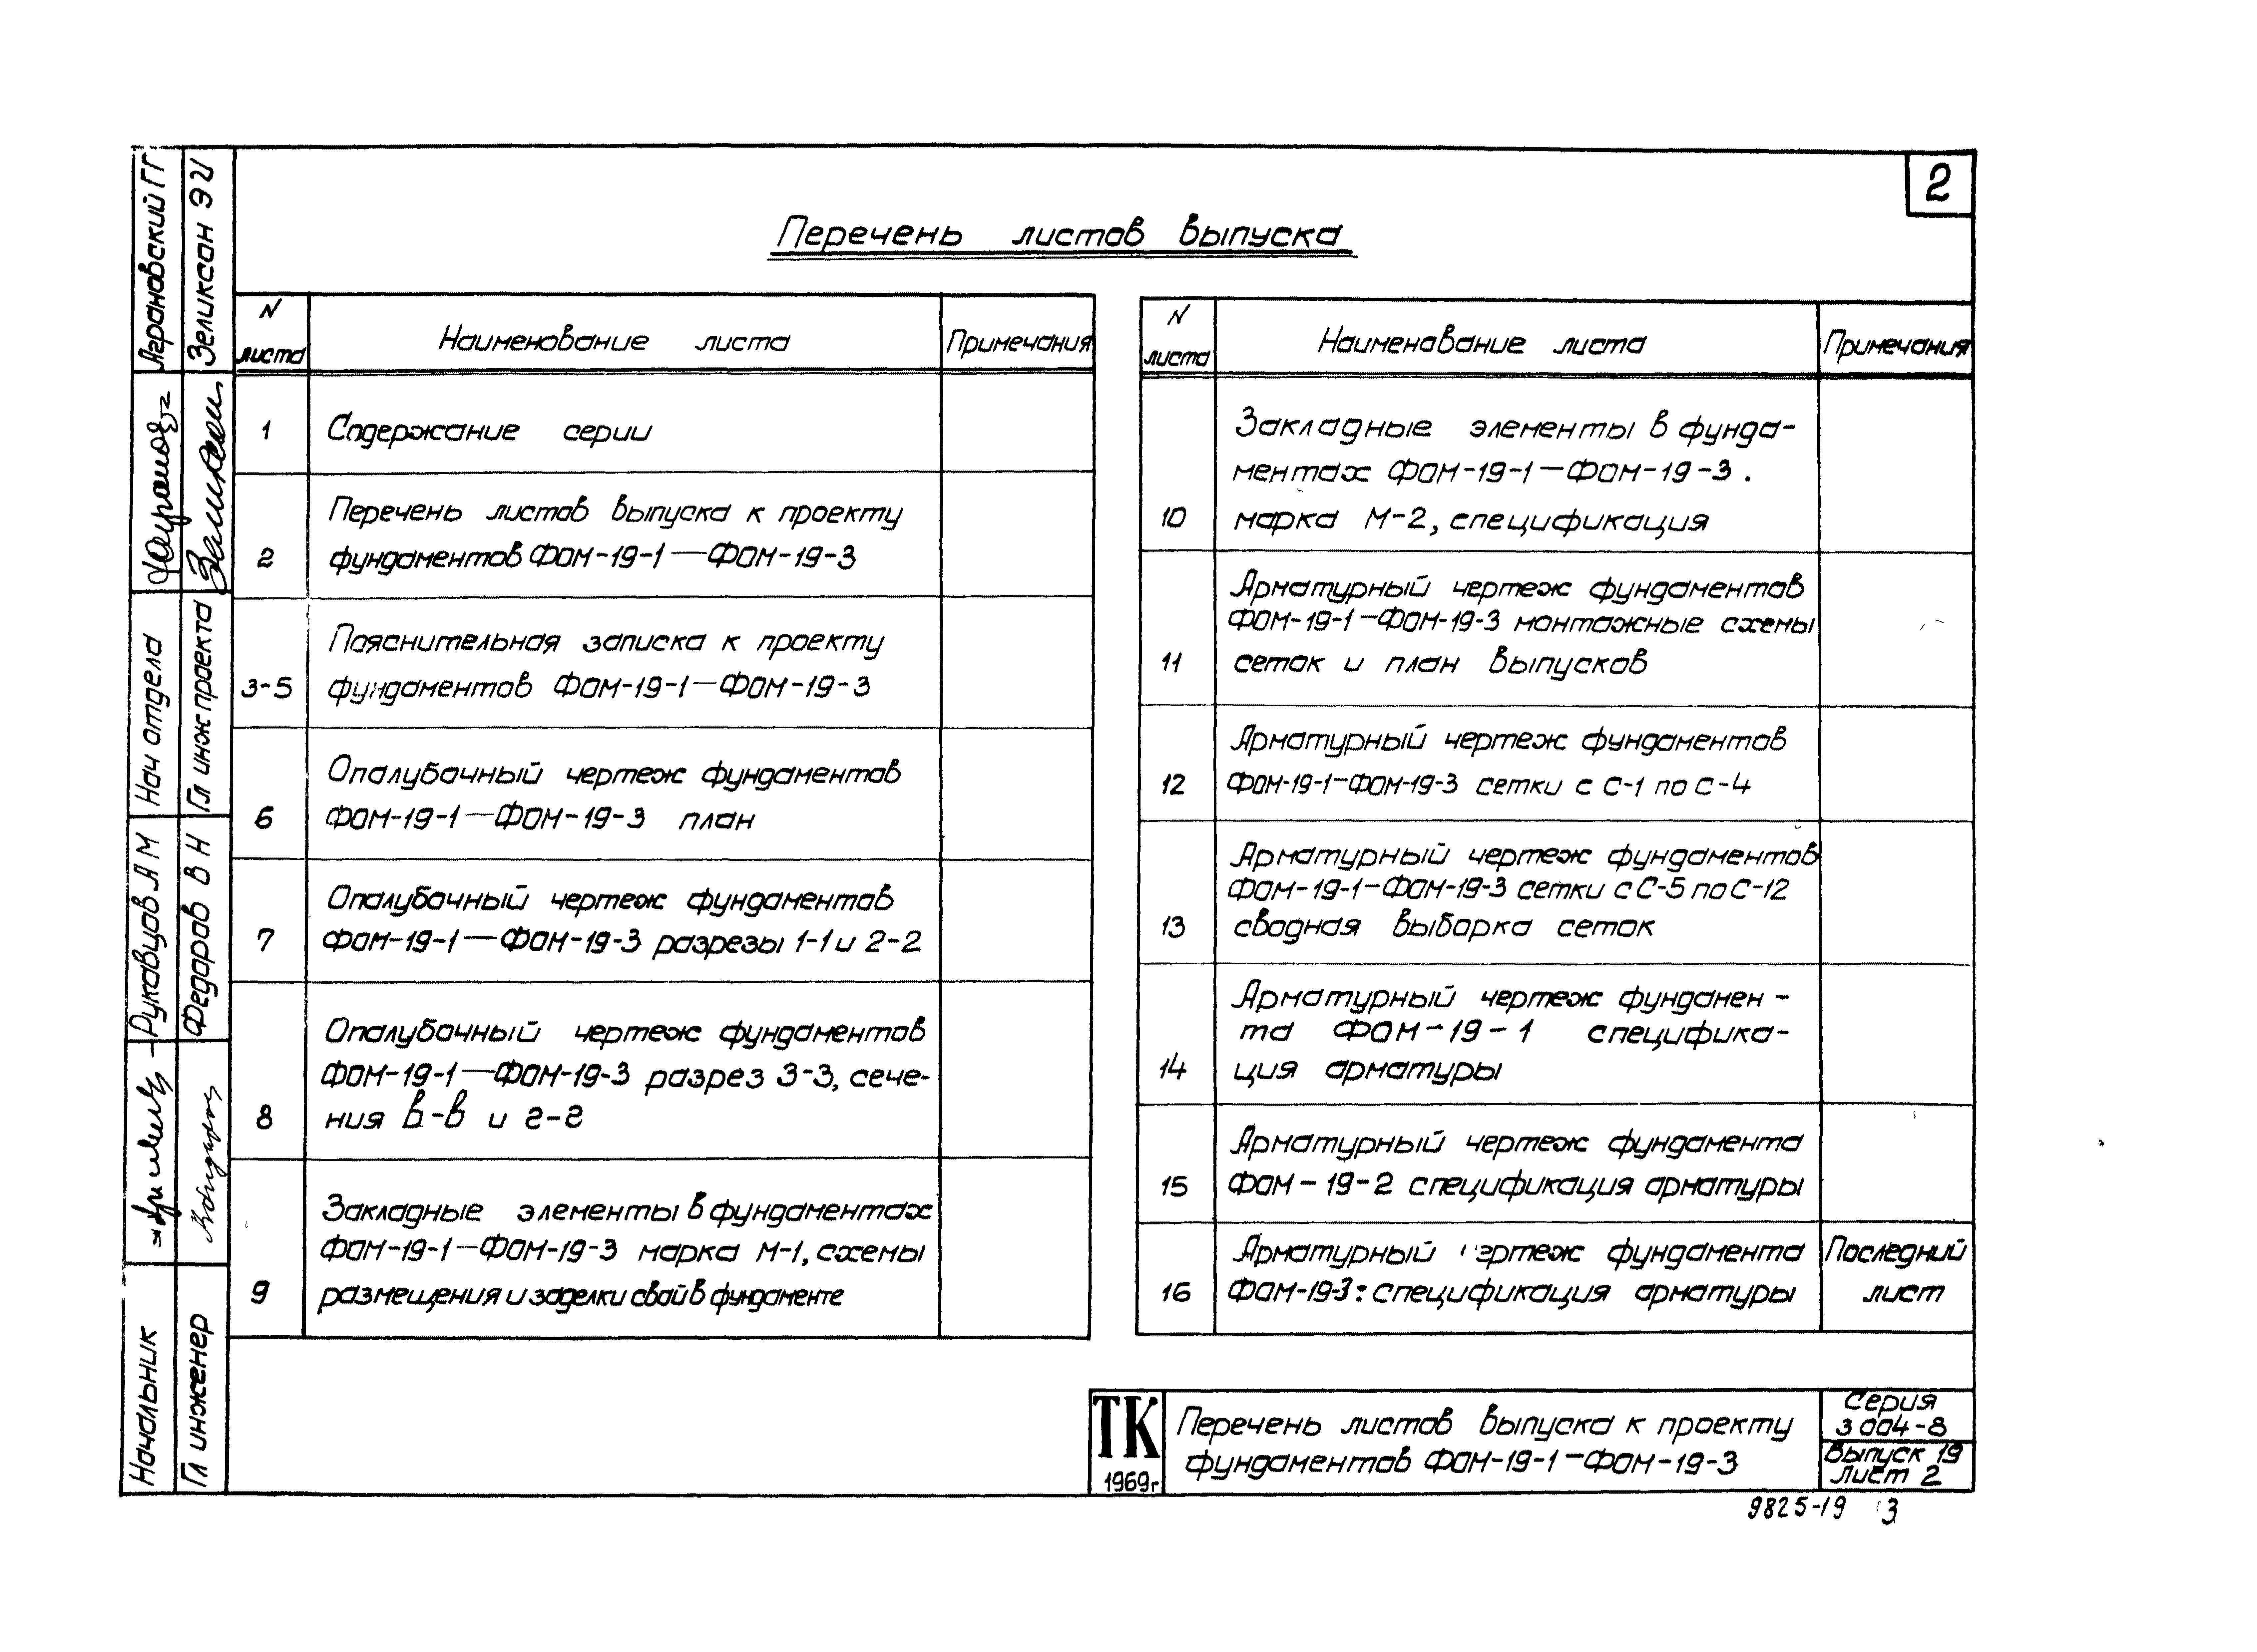 2
Перечень листов выпуска
N листа
Наименование листа
Примечания
1
Содержание серии
2
Перечень листов выпуска к проекту
фундаментов ФОМ-19-1—ФОМ-19-3
3-5
Пояснительная записка к проекту
фундаментов ФОМ-19-1—ФОМ-19-3
6
Опалубочный чертеж фундаментов
ФОМ-19-1—ФОМ-19-3 план
7
Опалубочный чертеж фундаментов
ФОМ-19-1—ФОМ-19-3 разрезы 1-1 и 2-2
8
Опалубочный чертеж фундаментов
ФОМ-19-1—ФОМ-19-3 разрез 3-3, сече-
ния в-в и г-г
9
Закладные элементы в фундаментах
ФОМ-19-1—ФОМ-19-3 марка М-1, схемы
размещения и заделки свай в фундаменте
N листа
Наименование листа
Примечания
10
Закладные элементы в фунда-
ментах ФОМ-19-1—ФОМ-19-3.
марка М-2, спецификация
11
Арматурный чертеж фундаментов
ФОМ-19-1—ФОМ-19-3 монтажные схемы
сеток и план выпусков
12
Арматурный чертеж фундаментов
ФОМ-19-1—ФОМ-19-3 сетки с С-1 по С-4
13
Арматурный чертеж фундаментов
ФОМ-19-1—ФОМ-19-3 сетки с С-5 по С-12
сводная выборка сеток
14
Арматурный чертеж фундамен-
та ФОМ-19-1 специфика-
ция арматуры
15
Арматурный чертеж фундамента
ФОМ-19-2 спецификация арматуры
16
Арматурный чертеж фундамента
ФОМ-19-3: спецификация арматуры
Последний
лист
ТК
1969г
Перечень листов выпуска к проекту
фундаментов ФОМ-19-1—ФОМ-19-3
Серия
3 004-8
Выпуск 19
Лист 2
9825-19 3
Начальник
Рукавцов А М
Нач отдела
Аграновский Г Г
Гл инженер
Федоров В Н
Гл инж проекта
Зеликсон Э И